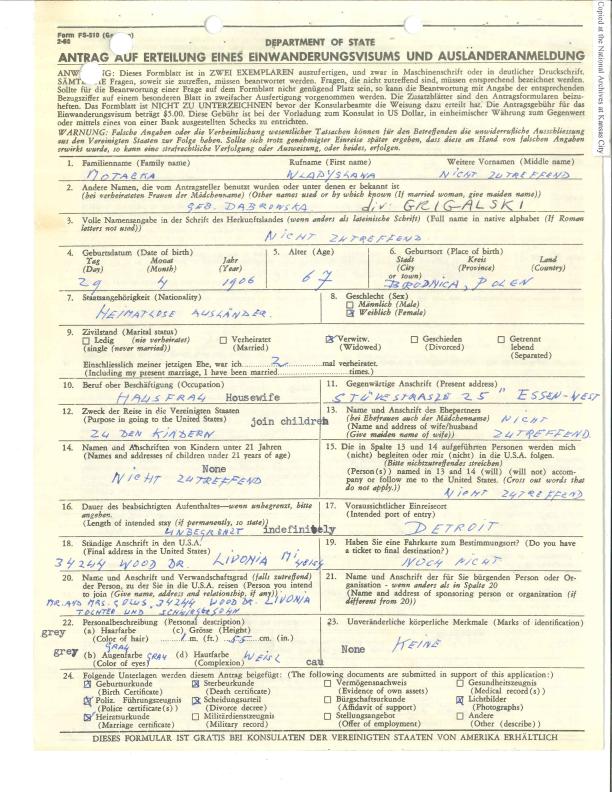 Form FS-510
2-60
DEPARTMENT OF STATE
ANTRAG AUF ERTEILUNG EINES EINWANDERUNGSVISUMS UND AUSLÄNDERANMELDUNG
Dieses Formblatt ist in ZWEI EXEMPLAREN auszufertigen, und zwar in Maschinenschrift oder in deutlicher Druckschrift.
Fragen, soweit sie zutreffen, müssen beantwortet werden. Fragen, die nicht zutreffend sind, müssen entsprechend bezeichnet werden.
Sollte für die Beantwortung einer Frage auf dem Formblatt nicht genügend Platz sein, so kann die Beantwortung mit Angabe der entsprechenden
Bezugsziffer auf einem besonderen Blatt in zweifacher Ausfertigung vorgenommen werden. Die Zusatzblätter sind den Antragsformularen beizu-
heften. Das Formblatt ist NICHT ZU UNTERZEICHNEN bevor der Konsularbeamte die Weisung dazu erteilt hat. Die Antragsgebühr für das
Einwanderungsvisum beträgt $5.00. Diese Gebühr ist bei der Vorladung zum Konsulat in US Dollar, in einheimischer Währung zum Gegenwert
oder mittels eines von einer Bank ausgestellten Schecks zu entrichten.
WARNUNG: Falsche Angaben oder die Verheimlichung wesentlicher Tatsachen können für den Betreffenden die unwiderrufliche Ausschliessung
aus den Vereinigten Staaten zur Folge haben. Sollte sich trotz genehmigter Einreise später ergeben, dass diese an Hand von falschen Angaben
erwirkt wurde, so kann eine strafrechtliche Verfolgung oder Ausweisung, oder beides, erfolgen.
1. Familienname (Family name) Rufname (First name) Weitere Vornamen (Middle name)
MOTACKA WLADYSLAWA NICHT ZUTREFFEND
2. Andere Namen, die vom Antragsteller benutzt wurden oder unter denen er bekannt ist
(bei verheirateten Frauen der Mädchenname) (Other names used or by which known (If married woman, give maiden name))
GEB. DABROWSKA div. GRIGALSKI
3. Volle Namensangabe in der Schrift des Herkunftslandes (wenn anders als lateinische Schrift) (Full name in native alphabet (If Roman
letters not used))
NICHT ZUTREFFEND
4. Geburtsdatum (Date of birth) 5. Alter (Age) 6. Geburtsort (Place of birth)
Tag Monat Jahr Stadt Kreis Land
(Day) (Month) (Year) (City or town) (Province) (Country)
29 4 1906 67 BRODNICA, POLEN
7. Staatsangehörigkeit (Nationality) 8. Geschlecht (Sex)
Männlich (Male)
HEIMATLOSE AUSLÄNDER. Weiblich (Female)
9. Zivilstand (Marital status)
Ledig (nie verheiratet) Verheiratet Verwitw. Geschieden Getrennt
(single (never married)) (Married) (Widowed) (Divorced) lebend
(Separated)
Einschliesslich meiner jetzigen Ehe, war ich 2 mal verheiratet.
(Including my present marriage, I have been married times.)
10. Beruf oder Beschäftigung (Occupation) 11. Gegenwärtige Anschrift (Present address)
HAUSFRAU Housewife STÜVESTRASZE 25 " ESSEN-WEST
12. Zweck der Reise in die Vereinigten Staaten
(Purpose in going to the United States) join children
ZU DEN KINDERN
13. Name und Anschrift des Ehepartners
(bei Ehefrauen auch der Mädchenname) NICHT
(Name and address of wife/husband
(Give maiden name of wife)) ZUTREFFEND
14. Namen und Anschriften von Kindern unter 21 Jahren
(Names and addresses of children under 21 years of age)
None
NICHT ZUTREFFEND
15. Die in Spalte 13 und 14 aufgeführten Personen werden mich
(nicht) begleiten oder mir (nicht) in die U.S.A. folgen.
(Bitte nichtzutreffendes streichen)
(Person(s) named in 13 and 14 (will) (will not) accom-
pany or follow me to the United States. (Cross out words that
do not apply.))
NICHT ZUTREFFEND
16. Dauer des beabsichtigten Aufenthaltes—wenn unbegrenzt, bitte
angeben.
(Length of intended stay (if permanently, so state))
UNBEGRENZT indefinitely
17. Voraussichtlicher Einreiseort
(Intended port of entry)
DETROIT
18. Ständige Anschrift in den U.S.A.
(Final address in the United States)
34244 WOOD DR. LIVONIA MI
19. Haben Sie eine Fahrkarte zum Bestimmungsort? (Do you have
a ticket to final destination?)
NOCH NICHT
20. Name und Anschrift und Verwandschaftsgrad (falls zutreffend)
der Person, zu der Sie in die U.S.A. reisen (Person you intend
to join (Give name, address and relationship, if any))
MR. AND MRS. 34244 WOOD DR. LIVONIA
TOCHTER UND SCHWIEGERSOHN
21. Name und Anschrift der für Sie bürgenden Person oder Or-
ganisation - wenn anders als in Spalte 20
(Name and address of sponsoring person or organization (if
different from 20))
22. Personalbeschreibung (Personal description)
grey (a) Haarfarbe (c) Grösse (Height)
(Color of hair) 1 m. (ft.) 55 cm. (in.)
GRAU
grey (b) Augenfarbe GRAU (d) Hautfarbe WEISS
(Color of eyes) (Complexion) cau
23. Unveränderliche körperliche Merkmale (Marks of identification)
None KEINE
24. Folgende Unterlagen werden diesem Antrag beigefügt: (The following documents are submitted in support of this application):
Geburtsurkunde Sterbeurkunde Vermögensnachweis Gesundheitszeugnis
(Birth Certificate) (Death certificate) (Evidence of own assets) (Medical record(s))
Poliz. Führungszeugnis Scheidungsurteil Bürgschaftsurkunde Lichtbilder
(Police certificate(s)) (Divorce decree) (Affidavit of support) (Photographs)
Heiratsurkunde Militärdienstzeugnis Stellungsangebot Andere
(Marriage certificate) (Military record) (Offer of employment) (Other (describe))
DIESES FORMULAR IST GRATIS BEI KONSULATEN DER VEREINIGTEN STAATEN VON AMERIKA ERHÄLTLICH
Copied at the National Archives at Kansas City